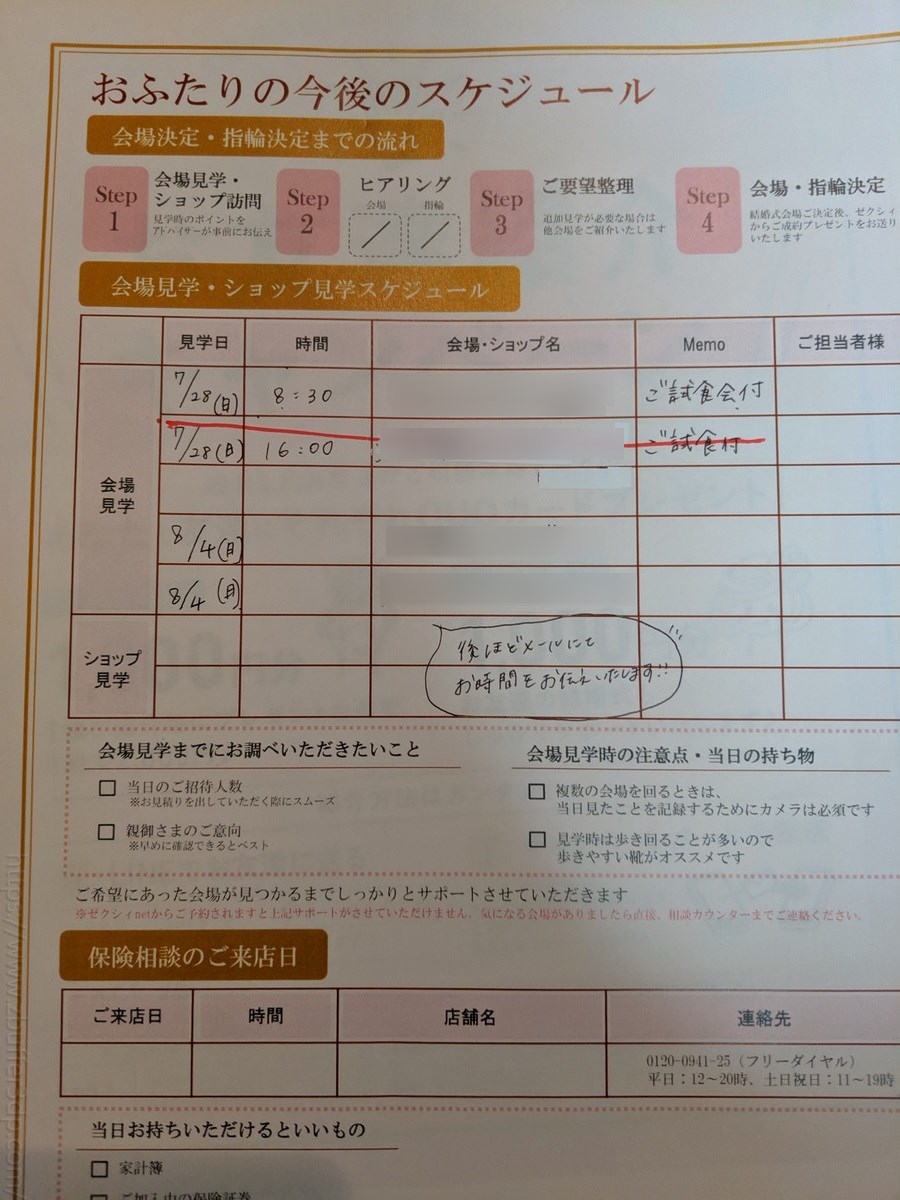 おふたりの今後のスケジュール
会場決定・指輪決定までの流れ
Step 1
会場見学・
ショップ訪問
見学時のポイントを
アドバイザーが事前にお伝え
Step 2
ヒアリング
会場 指輪
/ /
Step 3
ご要望整理
追加見学が必要な場合は
他会場をご紹介いたします
Step 4
会場・指輪決定
結婚式会場ご決定後、ゼクシィ
からご成約プレゼントをお送り
いたします
会場見学・ショップ見学スケジュール
見学日 時間 会場・ショップ名 Memo ご担当者様
会場
見学
7/28(日) 8:30 ご試食会付
7/28(日) 16:00 ご試食付
8/4(日)
8/4(月)
ショップ
見学
後ほどメールにて
お時間をお伝えいたします!!
会場見学までにお調べいただきたいこと
当日のご招待人数
※お見積りを出していただく際にスムーズ
親御さまのご意向
※早めに確認できるとベスト
会場見学時の注意点・当日の持ち物
複数の会場を回るときは、
当日見たことを記録するためにカメラは必須です
見学時は歩き回ることが多いので
歩きやすい靴がオススメです
ご希望にあった会場が見つかるまでしっかりとサポートさせていただきます
※ゼクシィnetからご予約されますと上記サポートがさせていただけません。気になる会場がありましたら直接、相談カウンターまでご連絡ください。
保険相談のご来店日
ご来店日 時間 店舗名 連絡先
0120-0941-25（フリーダイヤル）
平日：12～20時、土日祝日：11～19時
当日お持ちいただけるといいもの
家計簿
ご加入中の保険証券